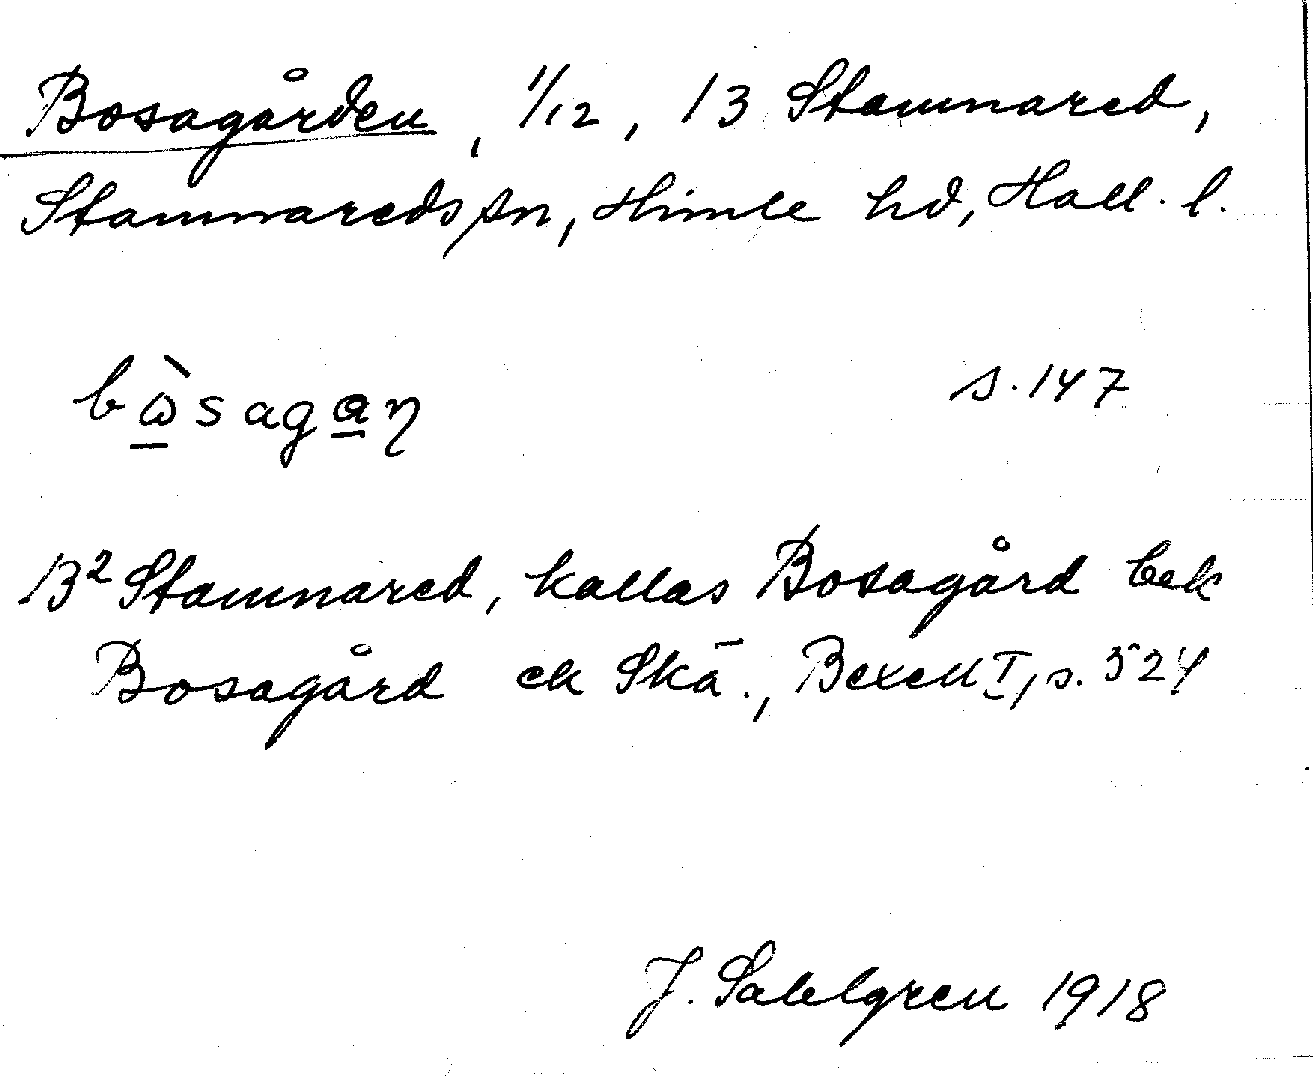 Bosagården, 1/12, 13 Stamnared,
Stamnareds sn, Himle hd, Hall. l.
bὼ̲saga̲n s. 147
13² Stamnared, kallas Bosagård bek
Bosagård ek Skā., Bexell I, s. 524
J. Sahlgren 1918